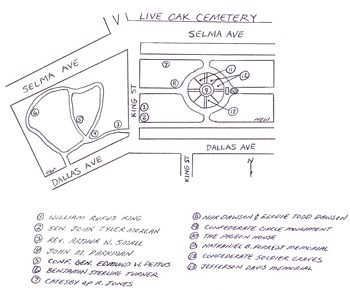 LIVE OAK CEMETERY
SELMA AVE
SELMA AVE
KING ST
DALLAS AVE
DALLAS AVE
KING ST
N
1 WILLIAM RUFUS KING
2 SEN. JOHN TYLER MORGAN
3 REV. ARTHUR W. SMALL
4 JOHN M. PARKMAN
5 CONF. GEN. EDMUND W. PETTUS
6 BENJAMIN STERLING TURNER
7 CATESBY AP R. JONES
8 NHR DAWSON & ELODIE TODD DAWSON
9 CONFEDERATE CIRCLE MONUMENT
10 THE PIGEON HOUSE
11 NATHANIEL B. FORREST MEMORIAL
12 CONFEDERATE SOLDIER GRAVES
13 JEFFERSON DAVIS MEMORIAL